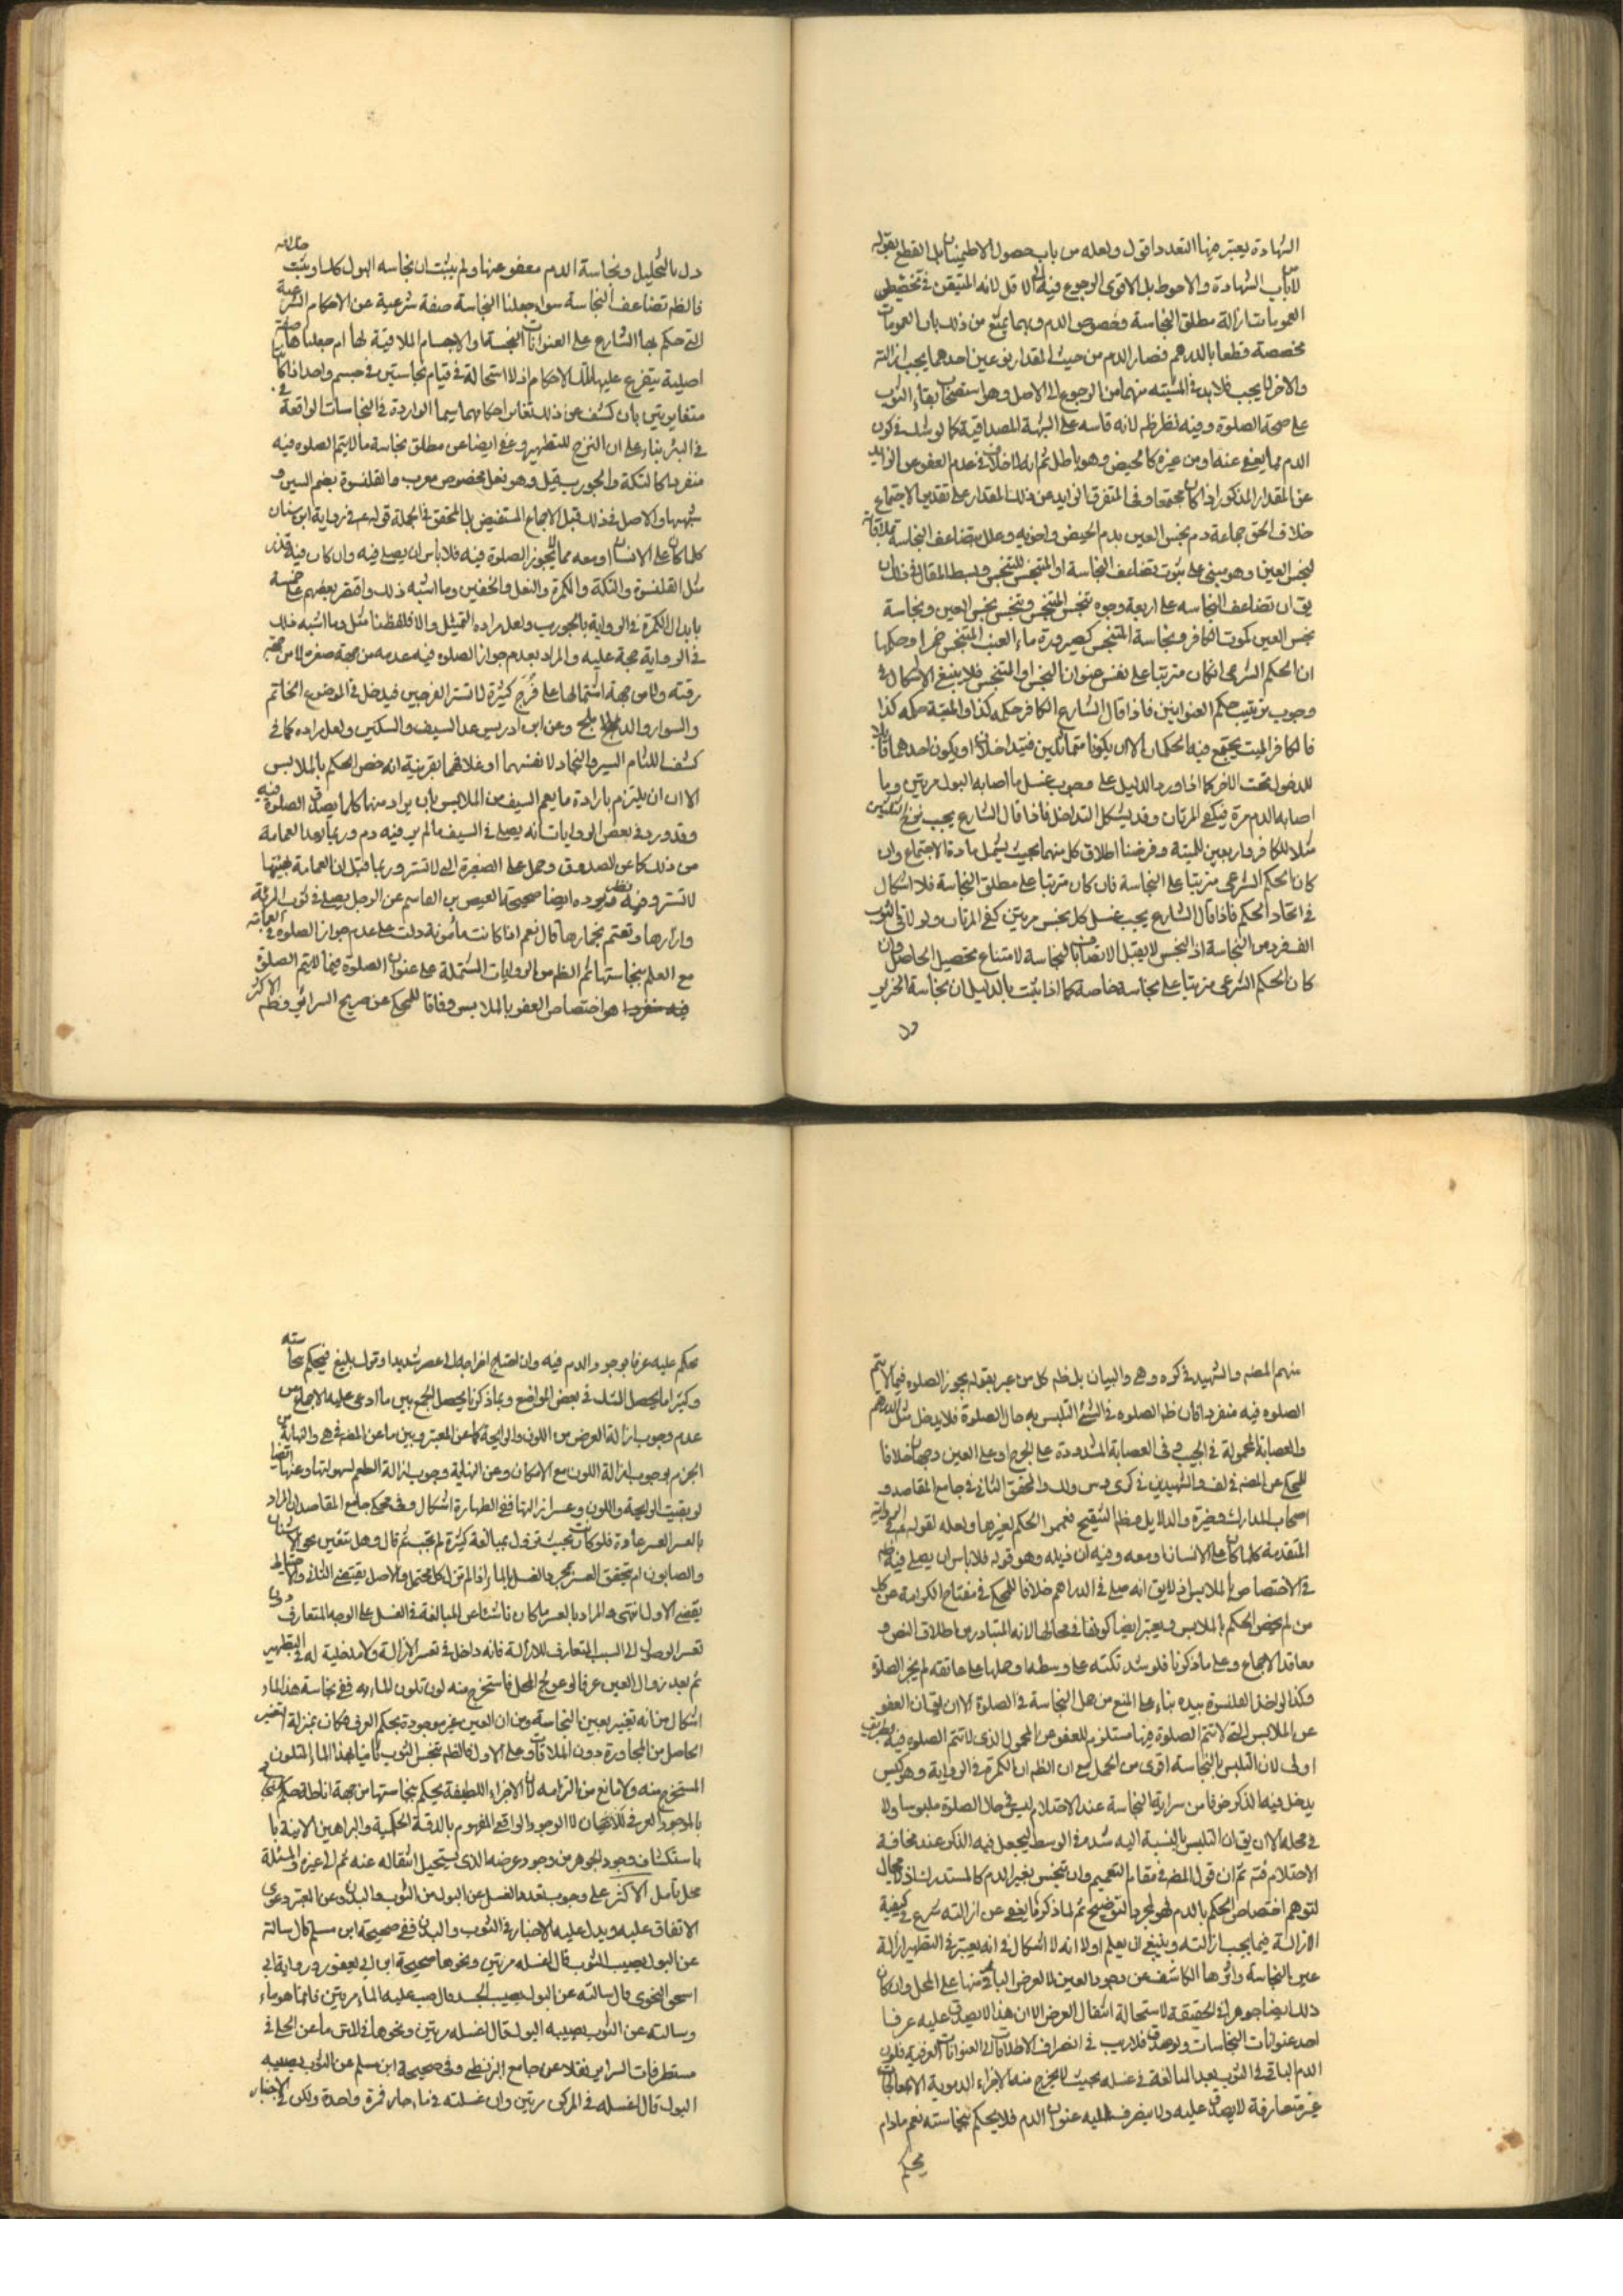 الشهادة يعتبر فيها التعدد اقول ولعله من باب حصول الاطمينان بل القطع بقوله
لا من باب الشهادة والاحوط بل الاقوى الرجوع فيه الى الاقل لانه المتيقن في تخصيص
العمومات بازالة مطلق النجاسة وخصوص الدم وربما يمنع من ذلك بان العمومات
مخصصة قطعا بالدرهم فصار الدم من حيث المقدار نوعين احدهما يجب ازالته
والاخر لا يجب فلا بد في المشتبه منهما من الرجوع الى الاصل وهو استصحاب بقاء الثوب
على صحة الصلوة وفيه نظر ظم لانه قاسه على الشبهة المصداقية كما لو شك في كون
الدم مما يعفى عنه او من غيره كالحيض وهو باطل ثم انه لا خلاف في عدم العفو عن الزايد
عن المقدار المذكور اذا كان مجتمعا وفى المتفرق الزايد عن ذلك المقدار على تقدير الاجتماع
خلاف الحق جماعة دم نجس العين بدم الحيض واخويه وعلل بتضاعف النجاسة بملاقاة
لنجس العين وهو مبنى على ثبوت تضاعف النجاسة او المتنجس للتنجس وبسط المقال في ذلك ان
يق ان تضاعف النجاسه على اربعة وجوه تنجس المتنجس وتنجس نجس العين ونجاسة
نجس العين كموت الكافر ونجاسة المتنجس كصيرورة ماء العنب المتنجس خمرا وحكمها
ان الحكم الشرعى ان كان مترتبا على نفس عنوان النجس او المتنجس فلا ينبغى الاشكال في
وجوب ترتيب حكم العنوانين فاذا قال الشارع الكافر حكمه كذا والميتة حكمه كذا
فالكافر الميت يجتمع فيه الحكمان الا ان يكونا متماثلين فيتداخلان او يكون احدهما قابلا
للدخول تحت الاخر كما اذا ورد الدليل على وجوب غسل ما اصابه البول مرتين وما
اصابه الدم مرة فيكفى المرتان وقد يشكل التداخل فاذا قال الشارع يجب نزح ثلثين
مثلا للكافر واربعين للميتة وفرضنا اطلاق كل منهما بحيث يشمل مادة الاجتماع وان
كان الحكم الشرعى مترتبا على النجاسة فان كان مترتبا على مطلق النجاسة فلا اشكال
في اتحاد الحكم فاذا قال الشارع يجب غسل كل نجس مرتين كفى المرتان ولو لاقى الثوب
الف فرد من النجاسة اذ النجس لا يقبل الاتصاف بالنجاسة لامتناع تحصيل الحاصل وان
كان الحكم الشرعى مترتبا على نجاسة خاصة كما اذا ثبت بالدليل ان نجاسة الخنزير
دل بالتحليل ونجاسة الدم معفو عنها ولم يثبت ان نجاسه البول كذلك او يثبت
فالظم تضاعف النجاسة سواء جعلنا النجاسة صفة شرعية عن الاحكام الشرعية
التى حكم بها الشارع على العنوانات النجسة والاجسام الملاقية لها ام جعلناها صفة
اصلية يتفرع عليها تلك الاحكام اذ لا استحالة في قيام نجاستين في جسم واحد اذا كانتا
متغايرتين بان كشف عن ذلك تغاير احكامهما سيما الواردة في النجاسات الواقعة
في البئر بناء على ان النزح للتطهير وعفى ايضا عن مطلق نجاسة ما لا يتم الصلوه فيه
منفردا كالتكة والجورب قيل وهو نعل مخصوص معرب والقلنسوة بضم السين و
شبهها والاصل في ذلك قبل الاجماع المستفيض بل المحقق في الجملة قوله ع في رواية ابن سنان
كلما كان على الانسان او معه مما لا يجوز الصلوة فيه فلا باس ان يصلى فيه وان كان فيه قذر
مثل القلنسوة والتكة والكمرة والنعل والخفين وما اشبه ذلك واقتصر بعضهم على خمسة
بابدال الكمرة في الرواية بالجورب ولعل مراده التمثيل والا فلفظنا مثل وما اشبه ذلك
في الرواية حجة عليه والمراد بعدم جواز الصلوه فيه عدمه من جهة صغره لا من جهة
رقته ولا من جهة اشتمالها على فُرَج كثيرة لا تستر الفرجين فيدخل في الموضوع الخاتم
والسوار والدملج وعن ابن ادريس عد السيف والسكين ولعل مراده كما في
كشف اللثام السير والنجاد لا نفسهما او غلافهما بقرينة انه خص الحكم بالملابس
الا ان يلتزم بارادة ما يعم السيف من الملابس بان يراد منها كلما يصدق الصلوة فيه
وقد ورد في بعض الروايات انه يصلى في السيف ما لم ير فيه دم وربما يعد العمامة
من ذلك كما عن الصدوق وحمل على الصغيرة التى لا تستر وربما قيل ان العمامة بهيئتها
لا تستر وفيه نظر ويرده ايضا صحيحة العيص بن القاسم عن الرجل يصلى في ثوب المرئة
وازارها ويعتم بخمارها قال نعم اذا كانت مأمونة دلت على عدم جواز الصلوه في العمامة
مع العلم بنجاستها ثم الظم من الروايات المشتملة على عنوان الصلوة فيما لا يتم الصلوة
فيه منفردا هو اختصاص العفو بالملابس وفاقا للمحكى عن صريح السرائر وظم الاكثر
منهم المصه والشهيد في كره وهى والبيان بل ظم كل من عبر بقوله يجوز الصلوه فيما لا يتم
الصلوه فيه منفردا فان ظم الصلوه في الشئ التلبس به حال الصلوة فلا يدخل مثل الدرهم
والعصابة المحمولة في الجيب وفى العصابة المشدودة على الجرح او على العين وجهان خلافا
للمحكى عن المصه في لف والشهيدين في كرى وس ولك والمحقق الثانى في جامع المقاصد و
اصحاب المدارك وخيرة والدلايل وظم التنقيح فعمموا الحكم لغيرها ولعله لقوله ع في الرواية
المتقدمة كلما كان على الانسان او معه وفيه ان ذيله وهو قوله فلا باس ان يصلى فيه ظم
في الاختصاص بالملابس اذ لا يق انه صلى في الدراهم خلافا للمحكى في مفتاح الكرامة عن كل
من لم يخص الحكم بالملابس ويعتبر ايضا كونها في محالها لانه المتبادر من اطلاق النص و
معاقد الاجماع وعلى ما ذكرنا فلو شد تكته على وسطه او حملها على عاتقه لم يجز الصلوة
وكذا لو اخذ القلنسوة بيده بناء على المنع من حمل النجاسة في الصلوة الا ان يق ان العفو
عن الملابس التى لا تتم الصلوة فيها مستلزم للعفو عن المحمول الذى لا تتم الصلوه فيه بطريق
اولى لان التلبس بالنجاسة اقوى من الحمل مع ان الظم ان الكمرة في الرواية وهو كيس
يدخل فيه الذكر خوفا من سراية النجاسة عند الاحتلام ليس في حال الصلوة ملبوسا ولا
في محله الا ان يق ان التلبس بالنسبة اليه شده في الوسط ليجعل فيه الذكر عند مخافة
الاحتلام فتم ثم ان قول المصه في مقام التعميم وان تنجس بغير الدم كالمستدرك اذ لا مجال
لتوهم اختصاص الحكم بالدم فهو لمجرد التوضيح ثم لما ذكر ما يعفى عن ازالته شرع في كيفية
الازالة فيما يجب ازالته وينبغى ان يعلم اولا انه لا اشكال في انه يعتبر في التطهير ازالة
عين النجاسة واثرها الكاشف عن وجود العين لا العرض الباقى منها على المحل وان كان
ذلك ايضا جوهرا في الحقيقة لاستحالة انتقال العرض الا ان هذا لا يصدق عليه عرفا
احد عنوانات النجاسات ولو صدق فلا ريب في انصراف الاطلاقات الى العنوانات العرفية فلون
الدم الباقى في الثوب بعد المبالغة في غسله بحيث لا يخرج منه الاجزاء الدموية الا بمعالجات
غير متعارفة لا يصدق عليه ولا ينصرف اليه عنوان الدم فلا يحكم بنجاسته نعم مادام
يحكم
يحكم عليه عرفا بوجود الدم فيه وان احتاج اخراجه الى عصر شديد او فرك بليغ فيحكم بنجاسته
وكثيرا ما يحصل الشك في بعض المواضع وبما ذكرنا يحصل الجمع بين ما ادعى عليه الاجماع من
عدم وجوب ازالة العرض من اللون والرايحة كما عن المعتبر وبين ما عن المصه في هى والنهاية من
الجزم بوجوب ازالة اللون مع الامكان وعن النهاية وجوب ازالة الطعم لسهولتها وعنها ايضا
لو بقيت الرايحة واللون وعسر ازالتها ففى الطهارة اشكال وفى محكى جامع المقاصد ان المراد
بالعسر العسر عادة فلو كان بحيث يزول بمبالغة كثيرة لم يجب ثم قال وهل تتعين نحو الاشنان
والصابون ام يتحقق العسر بمجرد الغسل بالماء اذا لم تزل كل محتمل والاصل يقتضى الثانى والاحتياط
يقتضى الاول انتهى والمراد بالعسر ما كان ناشئا عن المبالغة في الغسل على الوجه المتعارف دون
تعسر الوصول الى السبب المتعارف للازالة فانه داخل في تعسر الازالة ولا مدخلية له في التطهير
ثم بعد زوال العين عرفا لو عولج المحل فاستخرج منه لون تلون الماء به ففى نجاسة هذا الماء
اشكال من انه تغير بعين النجاسة ومن ان العين غير موجودة بحكم العرف فكان بمنزلة التغير
الحاصل من المجاورة دون الملاقات وعلى الاول فالظم تنجس الثوب ثانيا بهذا الماء المتلون
المستخرج منه ولا مانع من التزامه لان الاجزاء اللطيفة يحكم بنجاستها من جهة اناطة حكم الشارع
بالموجود العرفى لا الوجود الواقعى المفهوم بالدقة الحكمية والبراهين
باستكشاف وجود الجوهر من وجود عرضه الذى يستحيل انتقاله عنه ثم الى غيره والمسئلة
محل تأمل الاكثر على وجوب تعدد الغسل عن البول من الثوب والبدن وعن المعتبر دعوى
الاتفاق عليه ويدل عليه الاخبار في الثوب والبدن ففى صحيحة ابن مسلم قال سالته
عن البول يصيب الثوب قال اغسله مرتين ونحوها صحيحة ابن ابى يعفور ورواية ابى
اسحق النحوى قال سالته عن البول يصيب الجسد قال صب عليه الماء مرتين فانما هو ماء
وسالته عن الثوب يصيبه البول قال اغسله مرتين ونحوها في الامرين ما عن الحلى في
مستطرفات السراير نقلا عن جامع البزنطى وفى صحيحة ابن مسلم عن الثوب يصيبه
البول قال اغسله في المركن مرتين وان غسلته في ماء جار فمرة واحدة ولكن في الاخبار